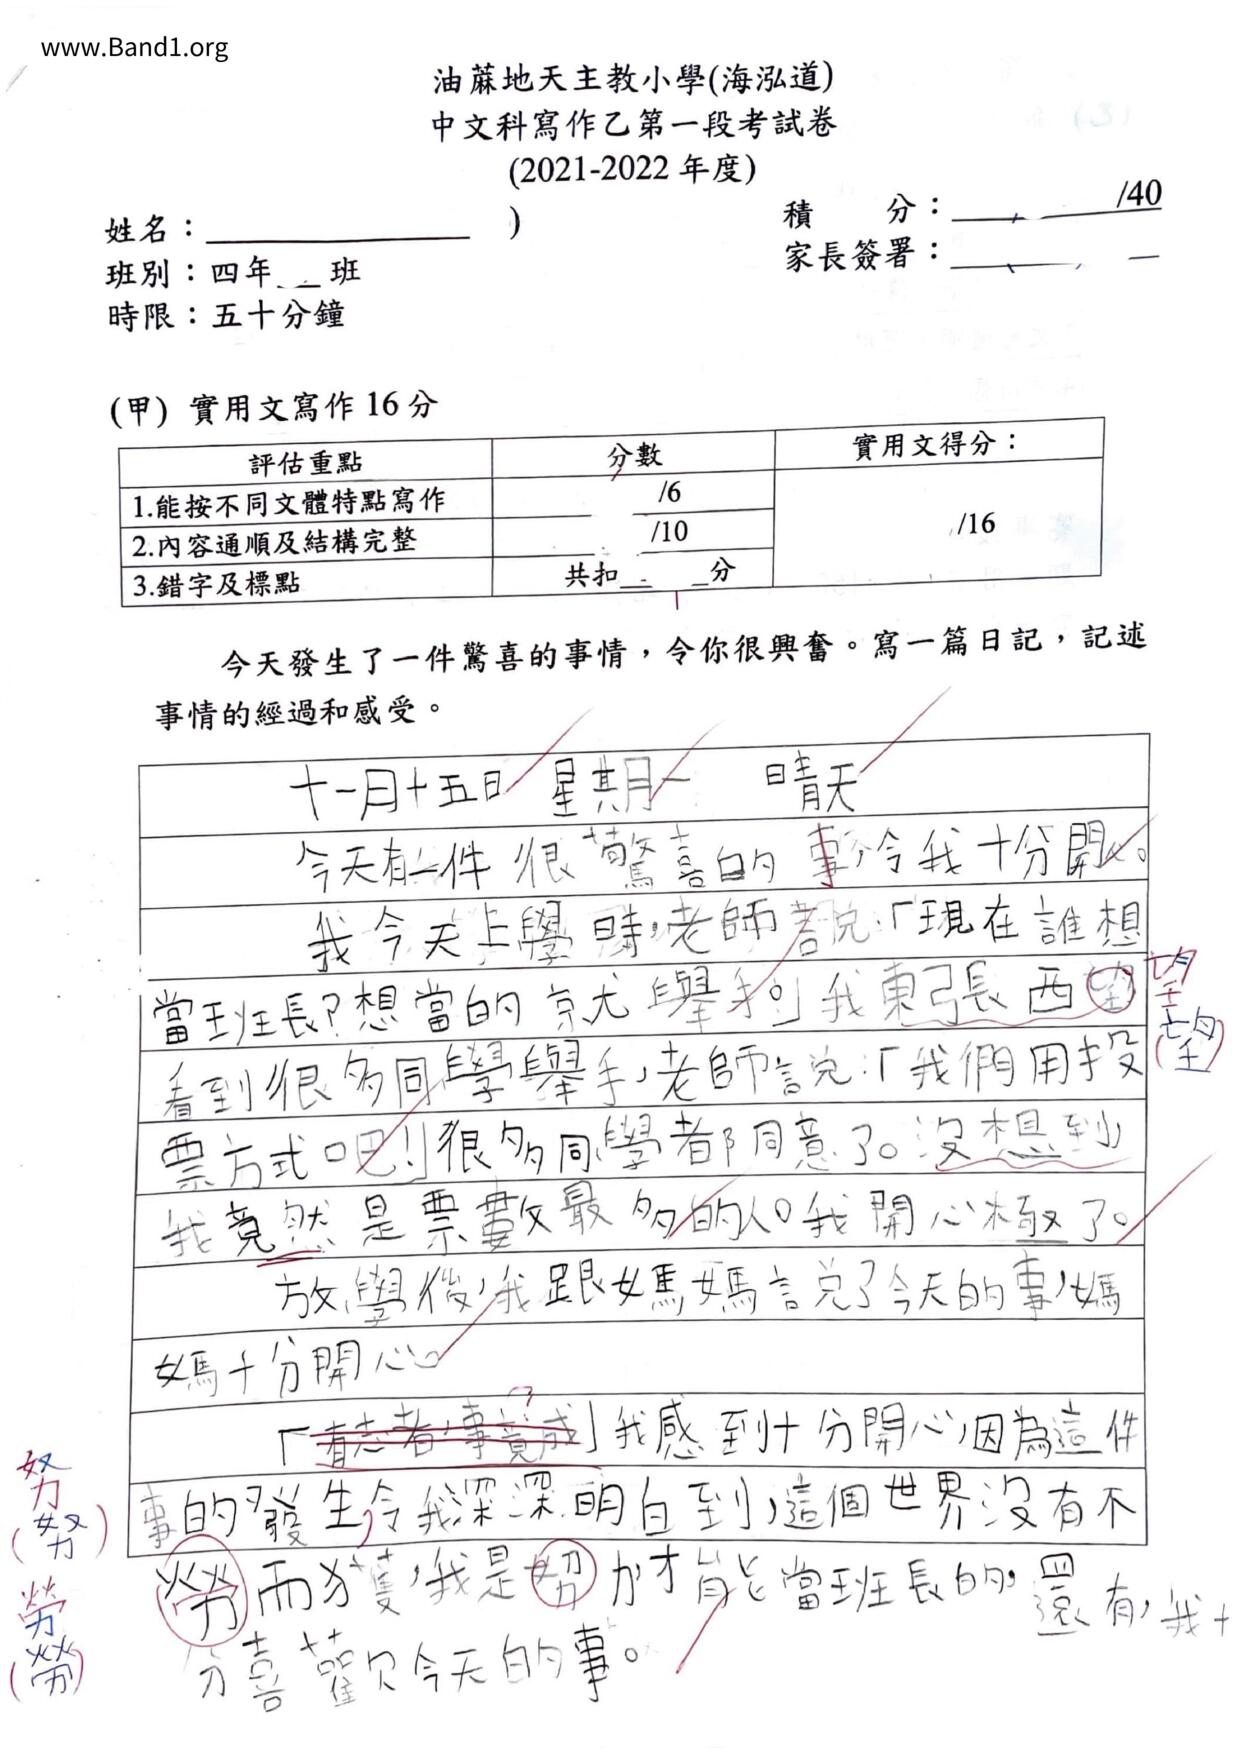 www.Band1.org
油蔴地天主教小學(海泓道)
中文科寫作乙第一段考試卷
(2021-2022 年度)
姓名：＿＿＿＿＿＿ )
積　分：＿＿＿＿/40
班別：四年＿班
家長簽署：＿＿＿＿
時限：五十分鐘
(甲) 實用文寫作 16 分
評估重點 分數 實用文得分：
1.能按不同文體特點寫作 /6
2.內容通順及結構完整 /10 /16
3.錯字及標點 共扣＿＿分
今天發生了一件驚喜的事情，令你很興奮。寫一篇日記，記述
事情的經過和感受。
十一月十五日 星期一 晴天
今天有一件很驚喜的事令我十分開心。
我今天上學時，老師說：「現在誰想
當班長？想當的就舉手。」我東張西望 望
看到很多同學舉手，老師說：「我們用投 (望)
票方式吧！」很多同學都同意了。沒想到
我竟然是票數最多的人。我開心極了。
放學後，我跟媽媽說了今天的事，媽
媽十分開心。
「有志者，事竟成」我感到十分開心，因為這件
努 事的發生，令我深深明白到，這個世界沒有不
(努) 勞而獲，我是努力才能當班長的，還有，我十
勞 分喜歡今天的事。
(勞)